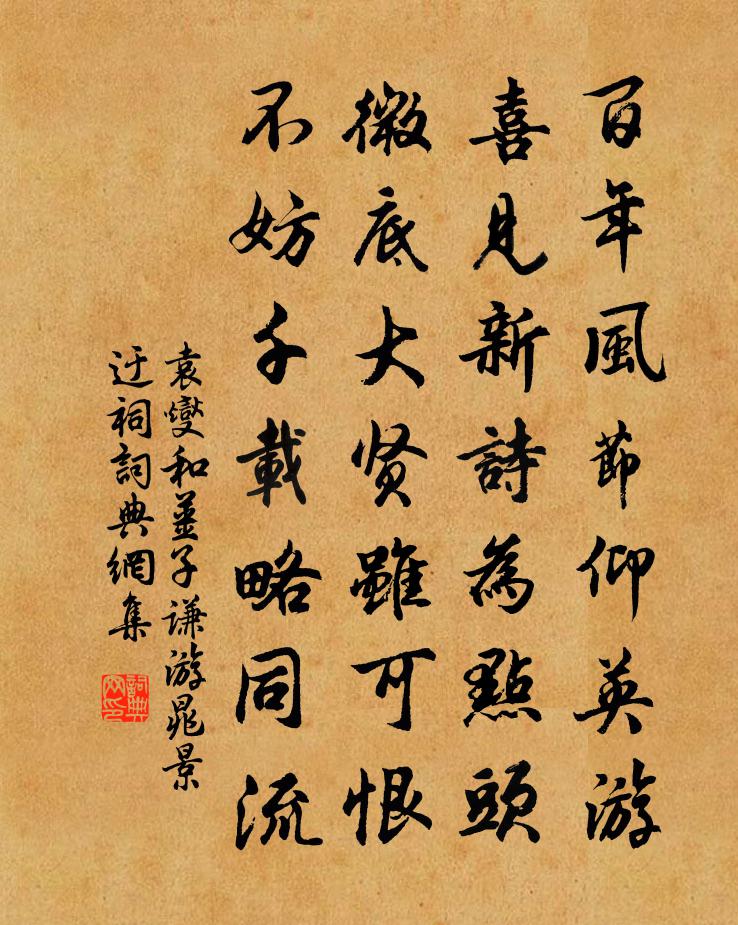 百年風節仰英游
喜見新詩為點頭
微底大贤雖可恨
不妨千載略同流
袁燮和薑子謙游晁景
迂祠詞典網集
詞典
网印